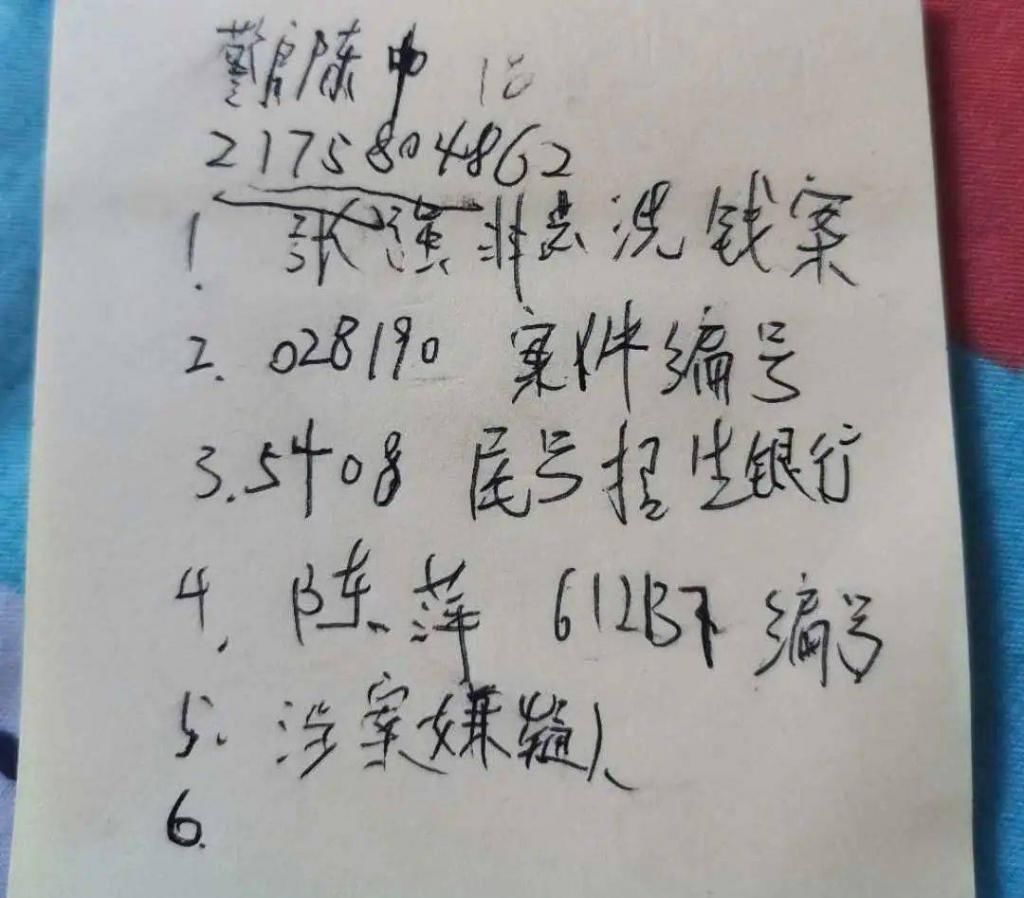 警官陈中
2175804862
1. 张强非法洗钱案
2. 028190 案件编号
3. 5408 尾号招生银行
4. 陈萍 612B 编号
5. 涉案嫌疑人
6.